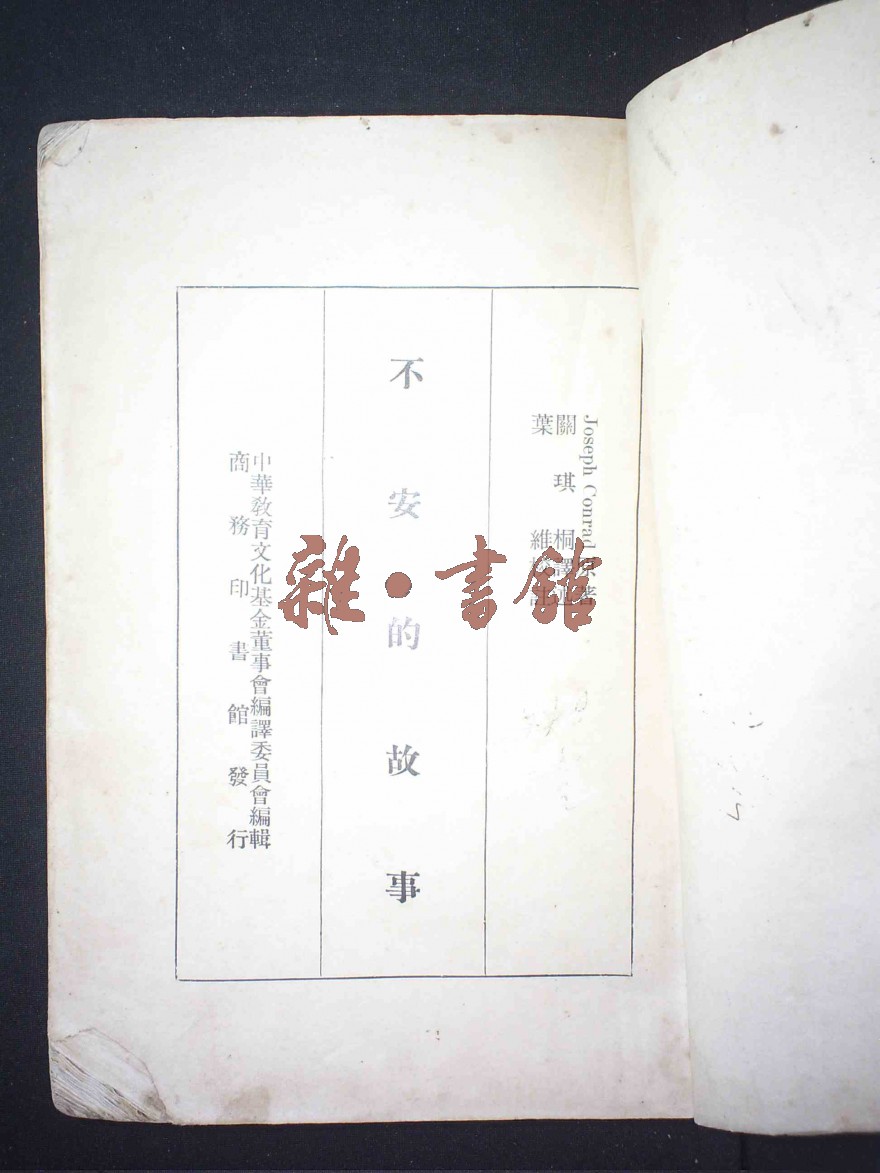 Joseph Conrad原著
關琪桐譯
葉維註
不安的故事
中華教育文化基金董事會編譯委員會編輯
商務印書館發行
雜·書館